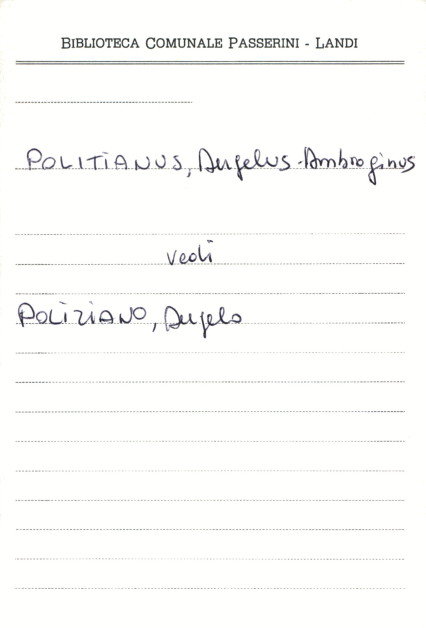 BIBLIOTECA COMUNALE PASSERINI - LANDI
POLITIANUS, Angelus Ambroginus
vedi
POLIZIANO, Angelo